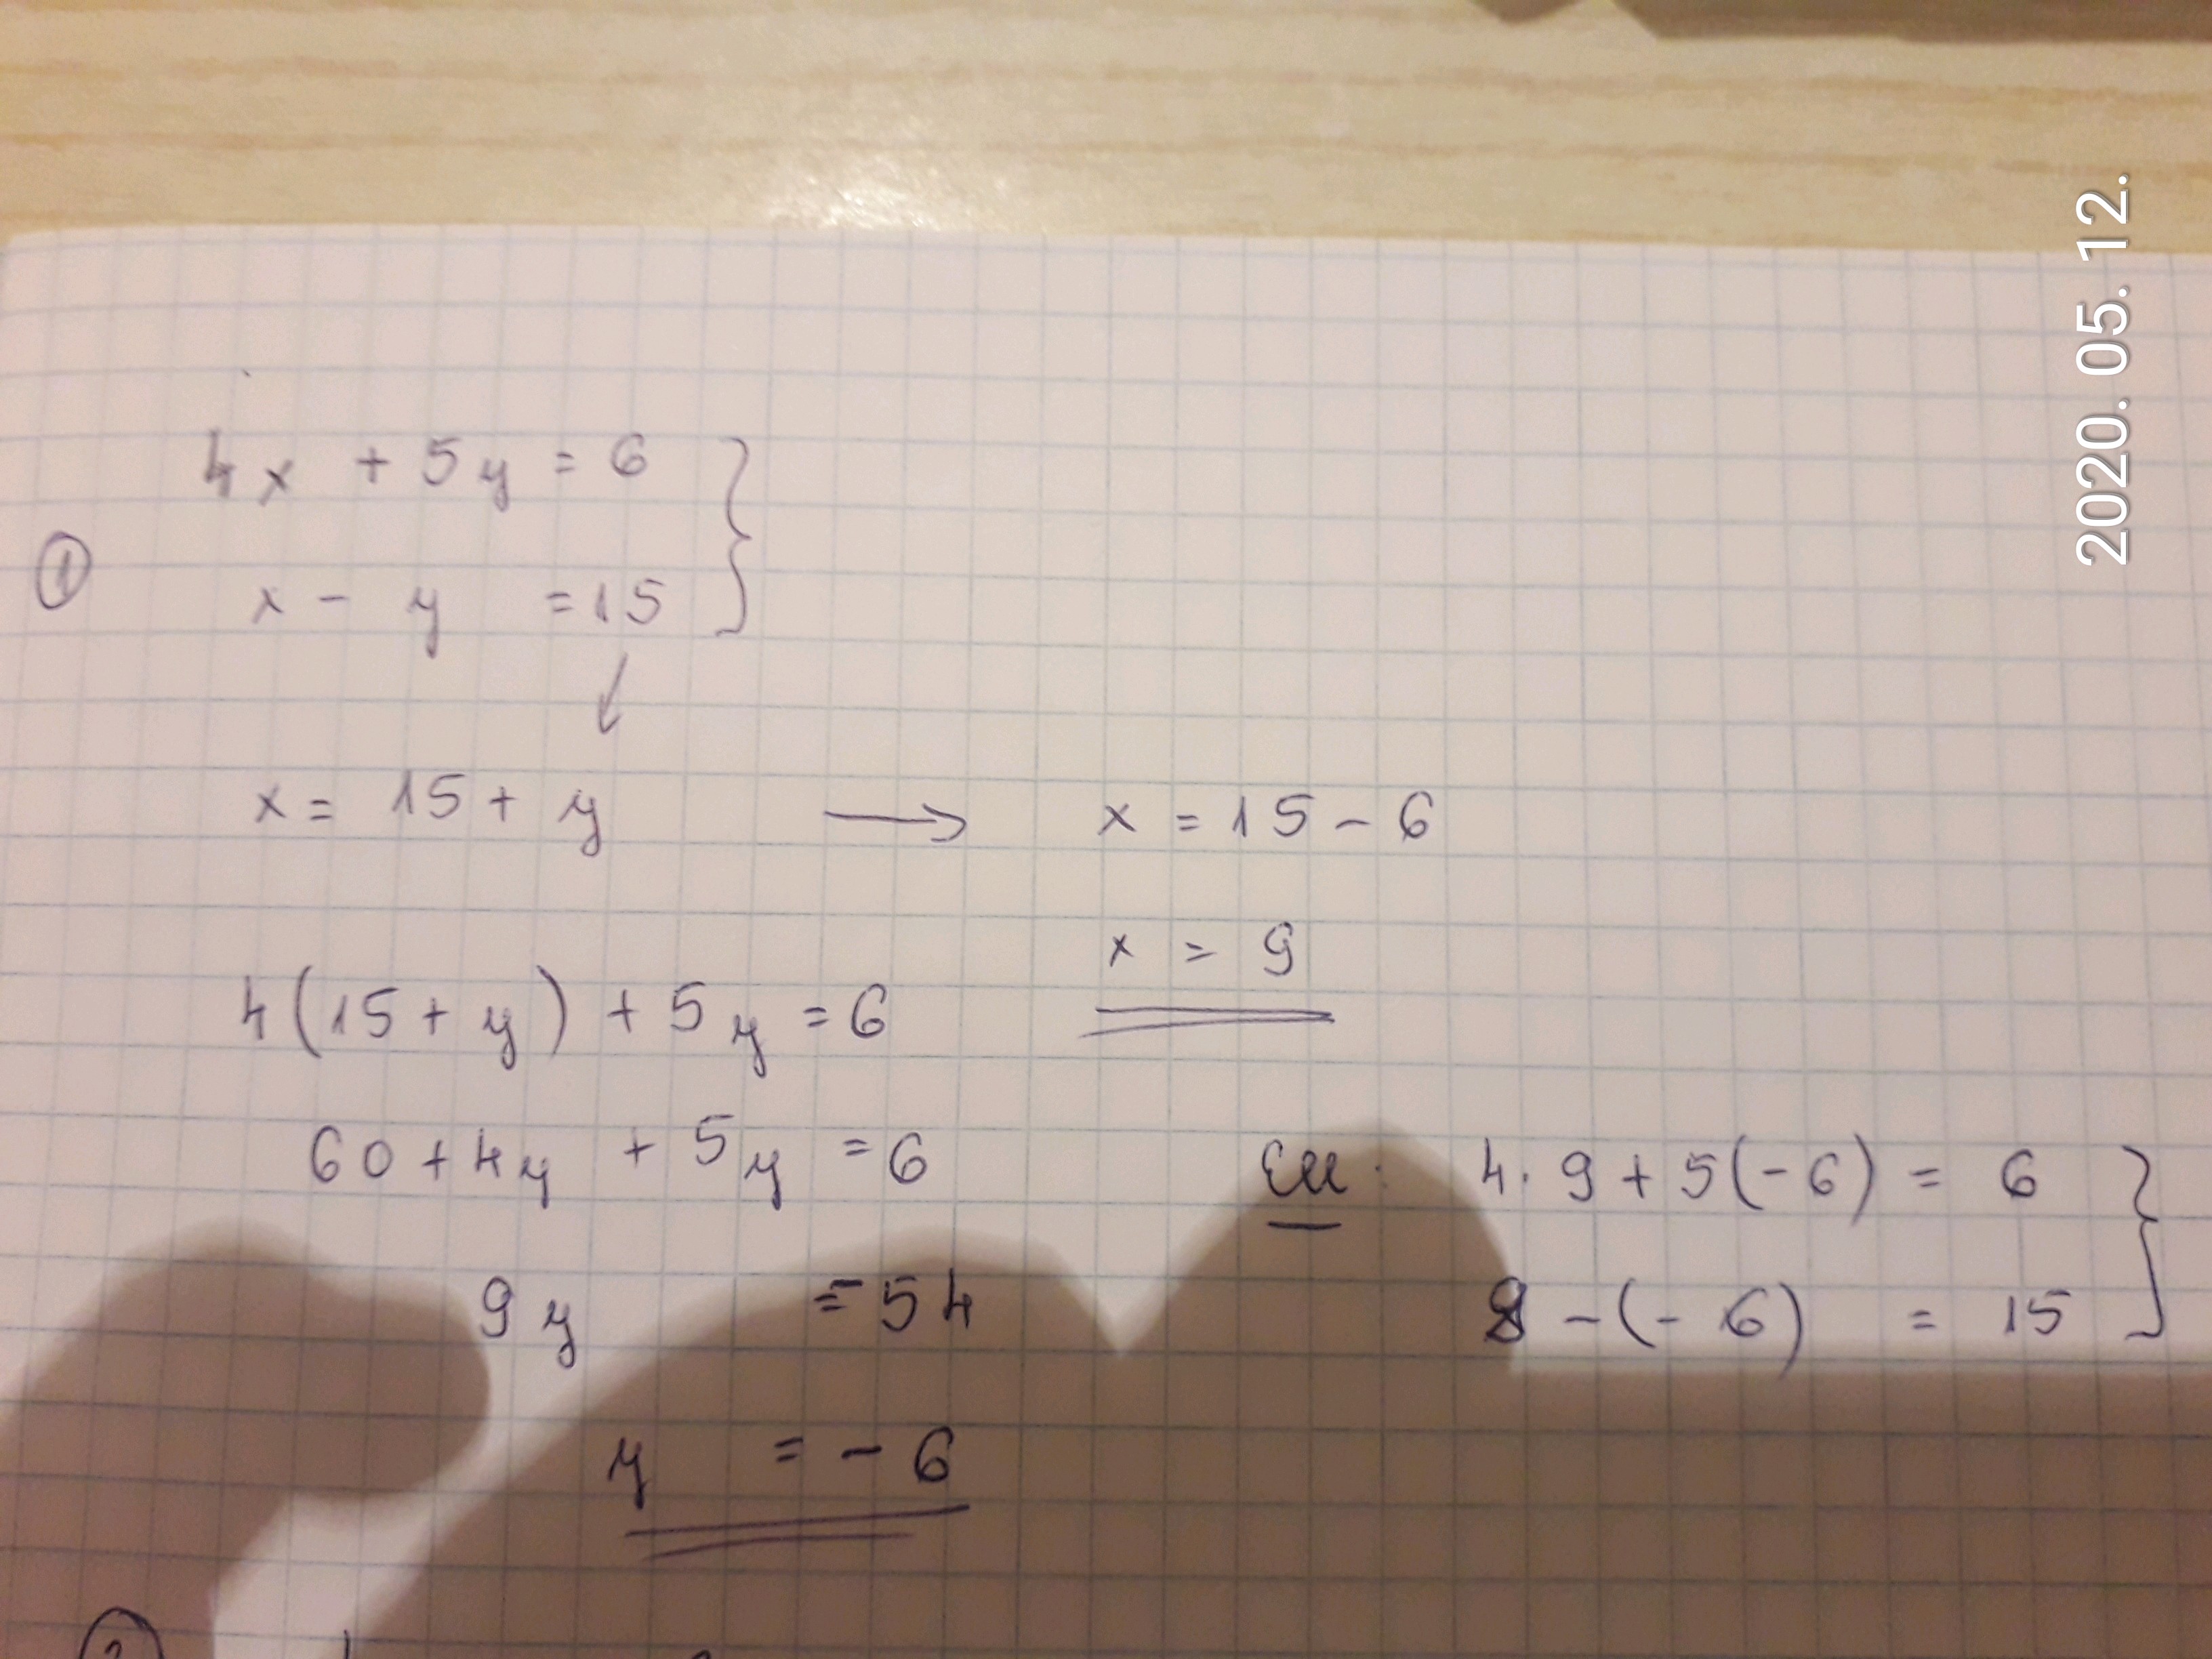 4x + 5y = 6
①
x - y = 15
x = 15 + y → x = 15 - 6
x = 9
4(15 + y) + 5y = 6
60 + 4y + 5y = 6
Ell: 4 · 9 + 5(-6) = 6
9y = -54
9 - (-6) = 15
y = -6
2020. 05. 12.